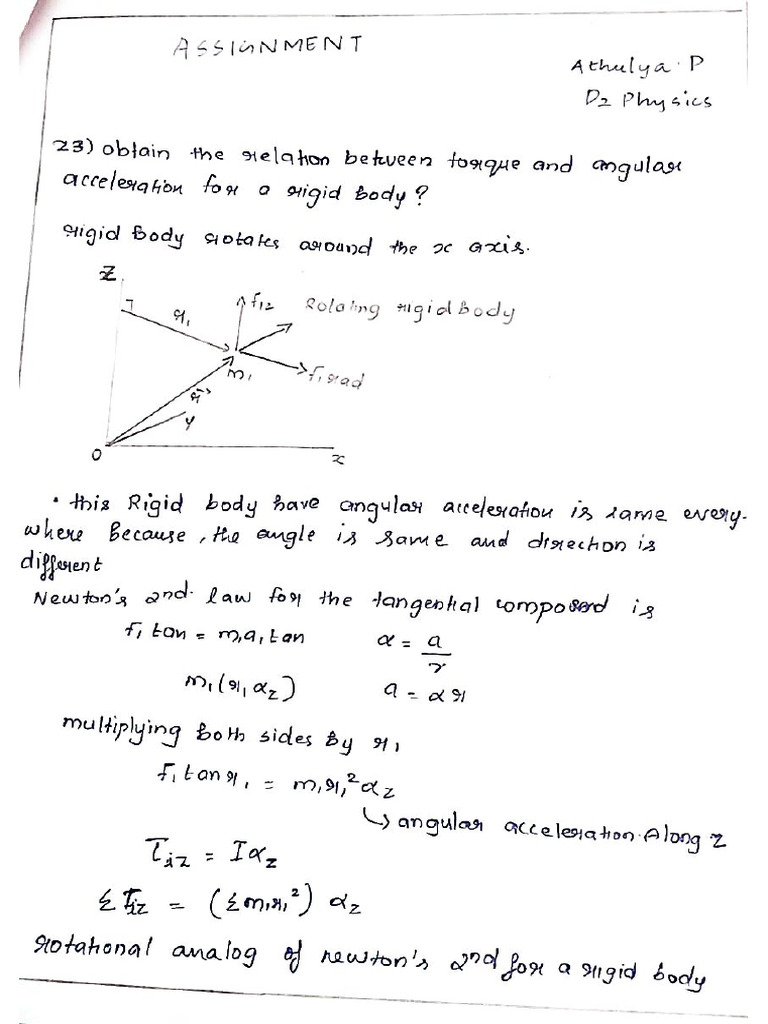 ASSIGNMENT
Athulya P
D2 Physics
23) obtain the relation between torque and angular
acceleration for a rigid body?
rigid Body rotates around the x axis.
Z
r₁ f₁z Rotating rigid body
m₁ f₁rad
r⃗
y
O x
• this Rigid body have angular acceleration is same every-
where Because, the angle is same and direction is
different
Newton's 2nd law for the tangential composed is
f₁ tan = m₁a₁tan α = a/r
m₁(r₁αz) a = αr
multiplying both sides by r₁
f₁tanr₁ = m₁r₁²αz
↳ angular acceleration Along z
τiz = Iαz
Στiz = (Σm₁r₁²) αz
rotational analog of newton's 2nd for a rigid body